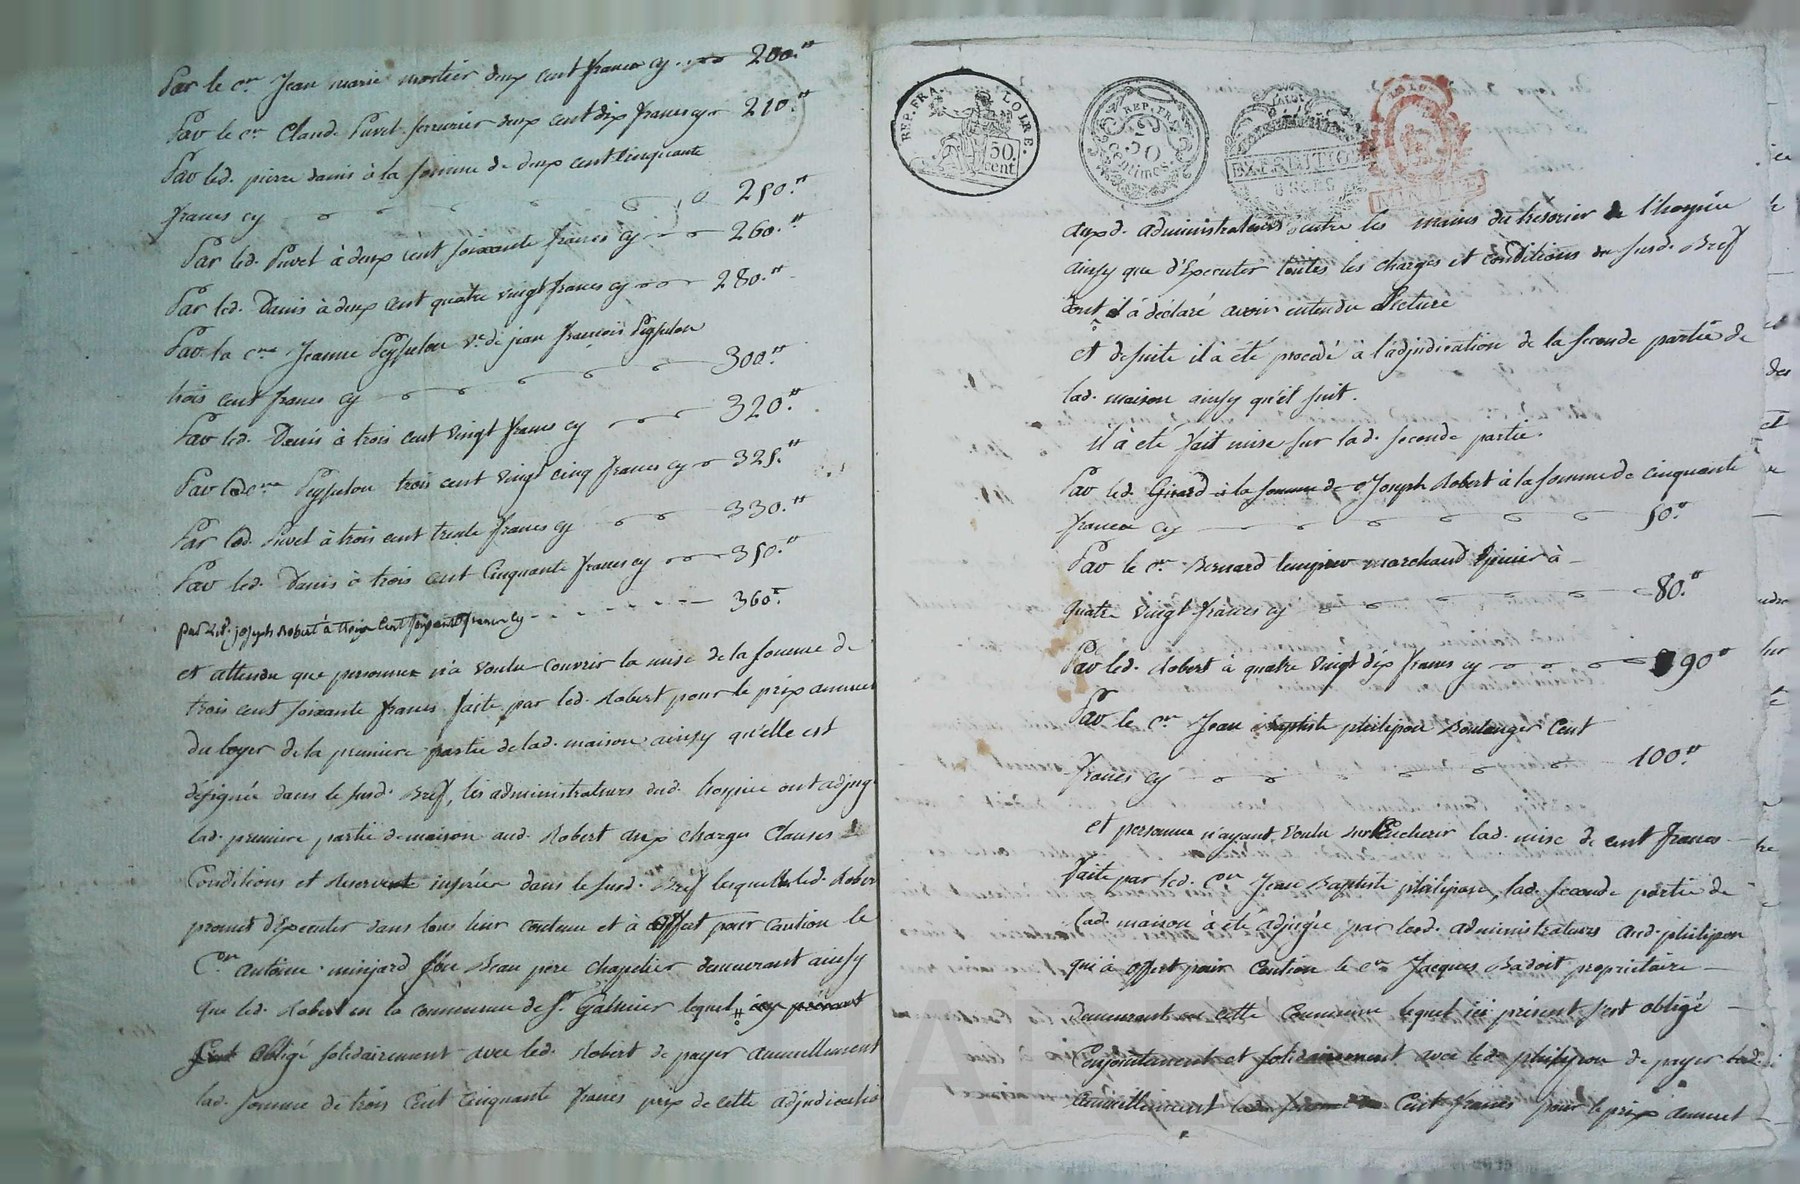 Par le c.en Jean marie mortier deux cent francs cy 200.#
Par le c.en Claude Puvel serrurier deux cent dix francs cy 210.#
Par led. pierre danis à la somme de deux cent cinquante
francs cy 250.#
Par led. Puvel à deux cent soixante francs cy 260.#
Par led. Danis à deux cent quatre vingt francs cy 280.#
Par la c.ne Jeanne Peysselon v.e de jean françois Peysselon
trois cent francs cy 300.#
Par led. Danis à trois cent vingt francs cy 320.#
Par lad. c.ne Peysselon trois cent vingt cinq francs cy 325.#
Par led. Puvel à trois cent trente francs cy 330.#
Par led. Danis à trois cent Cinquante francs cy 350.#
par led. joseph Robert à trois cent soixante francs cy 360.#
et attendu que personne n'a voulu couvrir la mise de la somme de
trois cent soixante francs faite par led. Robert pour le prix annuel
du loyer de la premiere partie de lad. maison ainsy qu'elle est
désignée dans le susd. Bref, les administrateurs dud. hospice ont adjugé
lad. premiere partie de maison aud. Robert aux charges Clauses
Conditions et Reserves insérées dans le susd. Bref lesquelles led. Robert
promet d'Executer dans tous leur contenu et à offert pour caution le
C.en antoine minjard son Beau pere chapelier demeurant ainsy
que led. Robert en la commune de S.t Galmier lequel icy présent
s'est obligé solidairement avec led. Robert de payer annuellement
lad. somme de trois Cent Cinquante francs prix de cette adjudicatio
REP. FRA.
LOIRE.
50.
cent
REP. FRA.
50
Centimes
EXPEDITIO
auxd. administrateurs entre les mains du tresorier de l'hospice
ainsy que d'Executer toutes les charges et conditions du susd. Bref
dont il à déclaré avoir entendu Lecture
et de suite il à été procedé à l'adjudication de la seconde partie de
lad. maison ainsy qu'il suit.
il à été fait mise sur lad. seconde partie.
Par led. Girard à la somme de Joseph Robert à la somme de cinquante
francs cy 50.#
Par le c.en Bernard marchand Epicier à
quatre vingt francs cy 80.#
Par led. Robert à quatre vingt dix francs cy 90#
Par le c.en Jean Baptiste philipon Boulanger Cent
francs cy 100.#
et personne n'ayant voulu surEncherir lad. mise de cent francs
faite par led. c.en Jean Baptiste philipon, lad. seconde partie de
lad. maison à été adjugée par lesd. administrateurs aud. philipon
qui à offert pour Caution le c.en Jacques Badoit propriétaire
demeurant en cette Commune lequel ici présent s'est obligé
Conjointement et solidairement avec led. philipon de payer
annuellement lad. somme de Cent francs pour le prix annuel